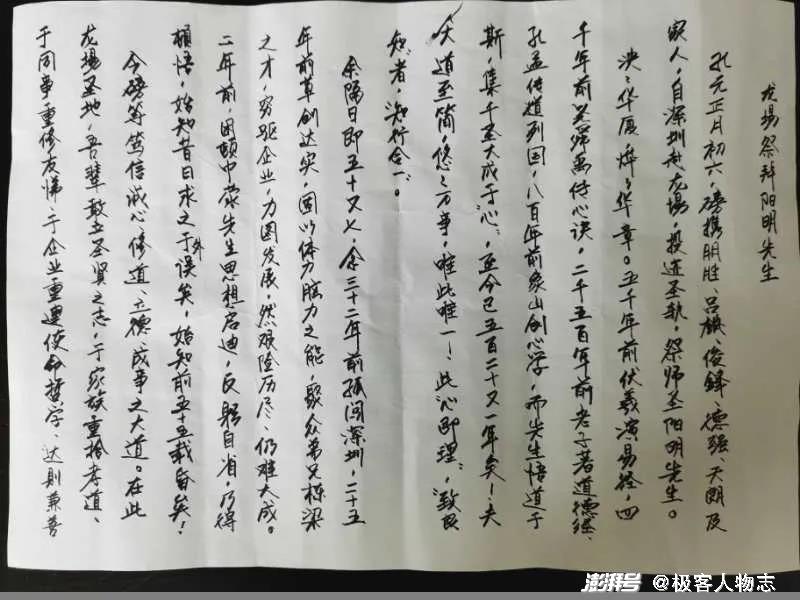 龙场祭拜阳明先生
孔元正月初六，磅携朋胜、吕毓、俊锋、德强、天朗及
家人，自深圳赴龙场，投迹圣轨，祭师圣阳明先生。
泱々华厦，烨々华章。五千年前伏羲演易经，四
千年前尧舜禹传心诀，二千五百年前老子著道德经、
孔孟传道列国，八百年前象山创心学，而先生悟道于
斯，集千圣大成于“心”，至今已五百二十又一年矣！夫
大道至简，悠々万事，唯此唯一！此“心即理”，“致良
知”者，“知行合一”。
余隔日即五十又七，余三十二年前孤闯深圳，二十五
年前草创达实，固以体力脑力之能，聚众弟兄栋梁
之才，穷驱企业，力图发展，然艰险历尽、仍难大成。
二年前，困顿中蒙先生思想启迪，反躬自省，乃得
顿悟，始知昔日求之于外误矣，始知前五十五载昏矣！
今磅等笃信诚心、修道、立德、成事之大道。在此
龙场圣地，吾辈敢立圣贤之志，于家族重拾孝道、
于同事重修友悌、于企业重建使命哲学、达则兼善
澎湃号 @极客人物志